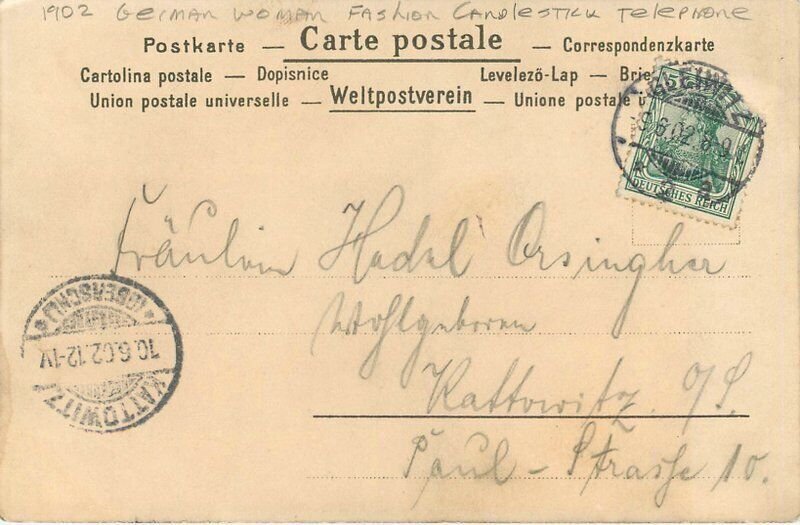 1902 GERMAN WOMAN FASHION CANDLESTICK TELEPHONE
Postkarte — Carte postale — Correspondenzkarte
Cartolina postale — Dopisnice Levelező-Lap — Brie
Union postale universelle — Weltpostverein — Unione postale u
5 5
DEUTSCHES REICH
6.02. 8-9
Fräulein Hedel Orsingher
Wohlgeboren
Kattowitz O/S.
Paul-Strasse 10.
KATTOWITZ
10.6.02.12-1V.
* (OBERSCHL.) *